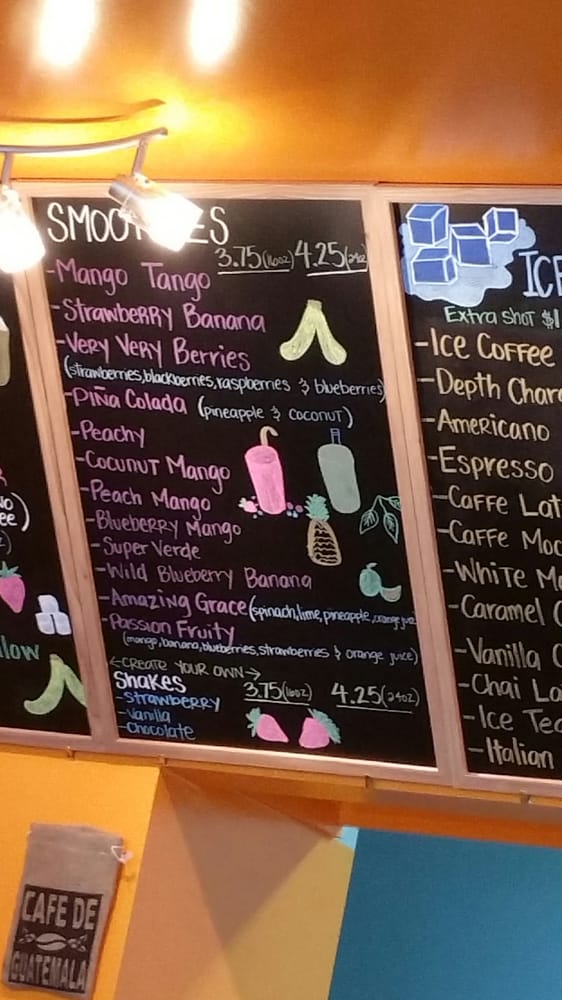 SMOOTHIES
3.75(16oz) 4.25(24oz)
-Mango Tango
-Strawberry Banana
-Very Very Berries
(strawberries,blackberries,raspberries & blueberries)
-Piña Colada (pineapple & coconut)
-Peachy
-Cocunut Mango
-Peach Mango
-Blueberry Mango
-Super Verde
-Wild Blueberry Banana
-Amazing Grace (spinach,lime,pineapple,orange juice
-Passion Fruity
(mango,banana,blueberries,strawberries & orange juice)
←CREATE YOUR OWN→
Shakes 3.75(16oz) 4.25(24oz)
-Strawberry
-Vanilla
-Chocolate
ICE
Extra Shot $1
-Ice Coffee
-Depth Char
-Americano
-Espresso
-Caffe Lat
-Caffe Moc
-White Mo
-Caramel C
-Vanilla C
-Chai La
-Ice Tea
-Italian
llow
CAFE DE
GUATEMALA